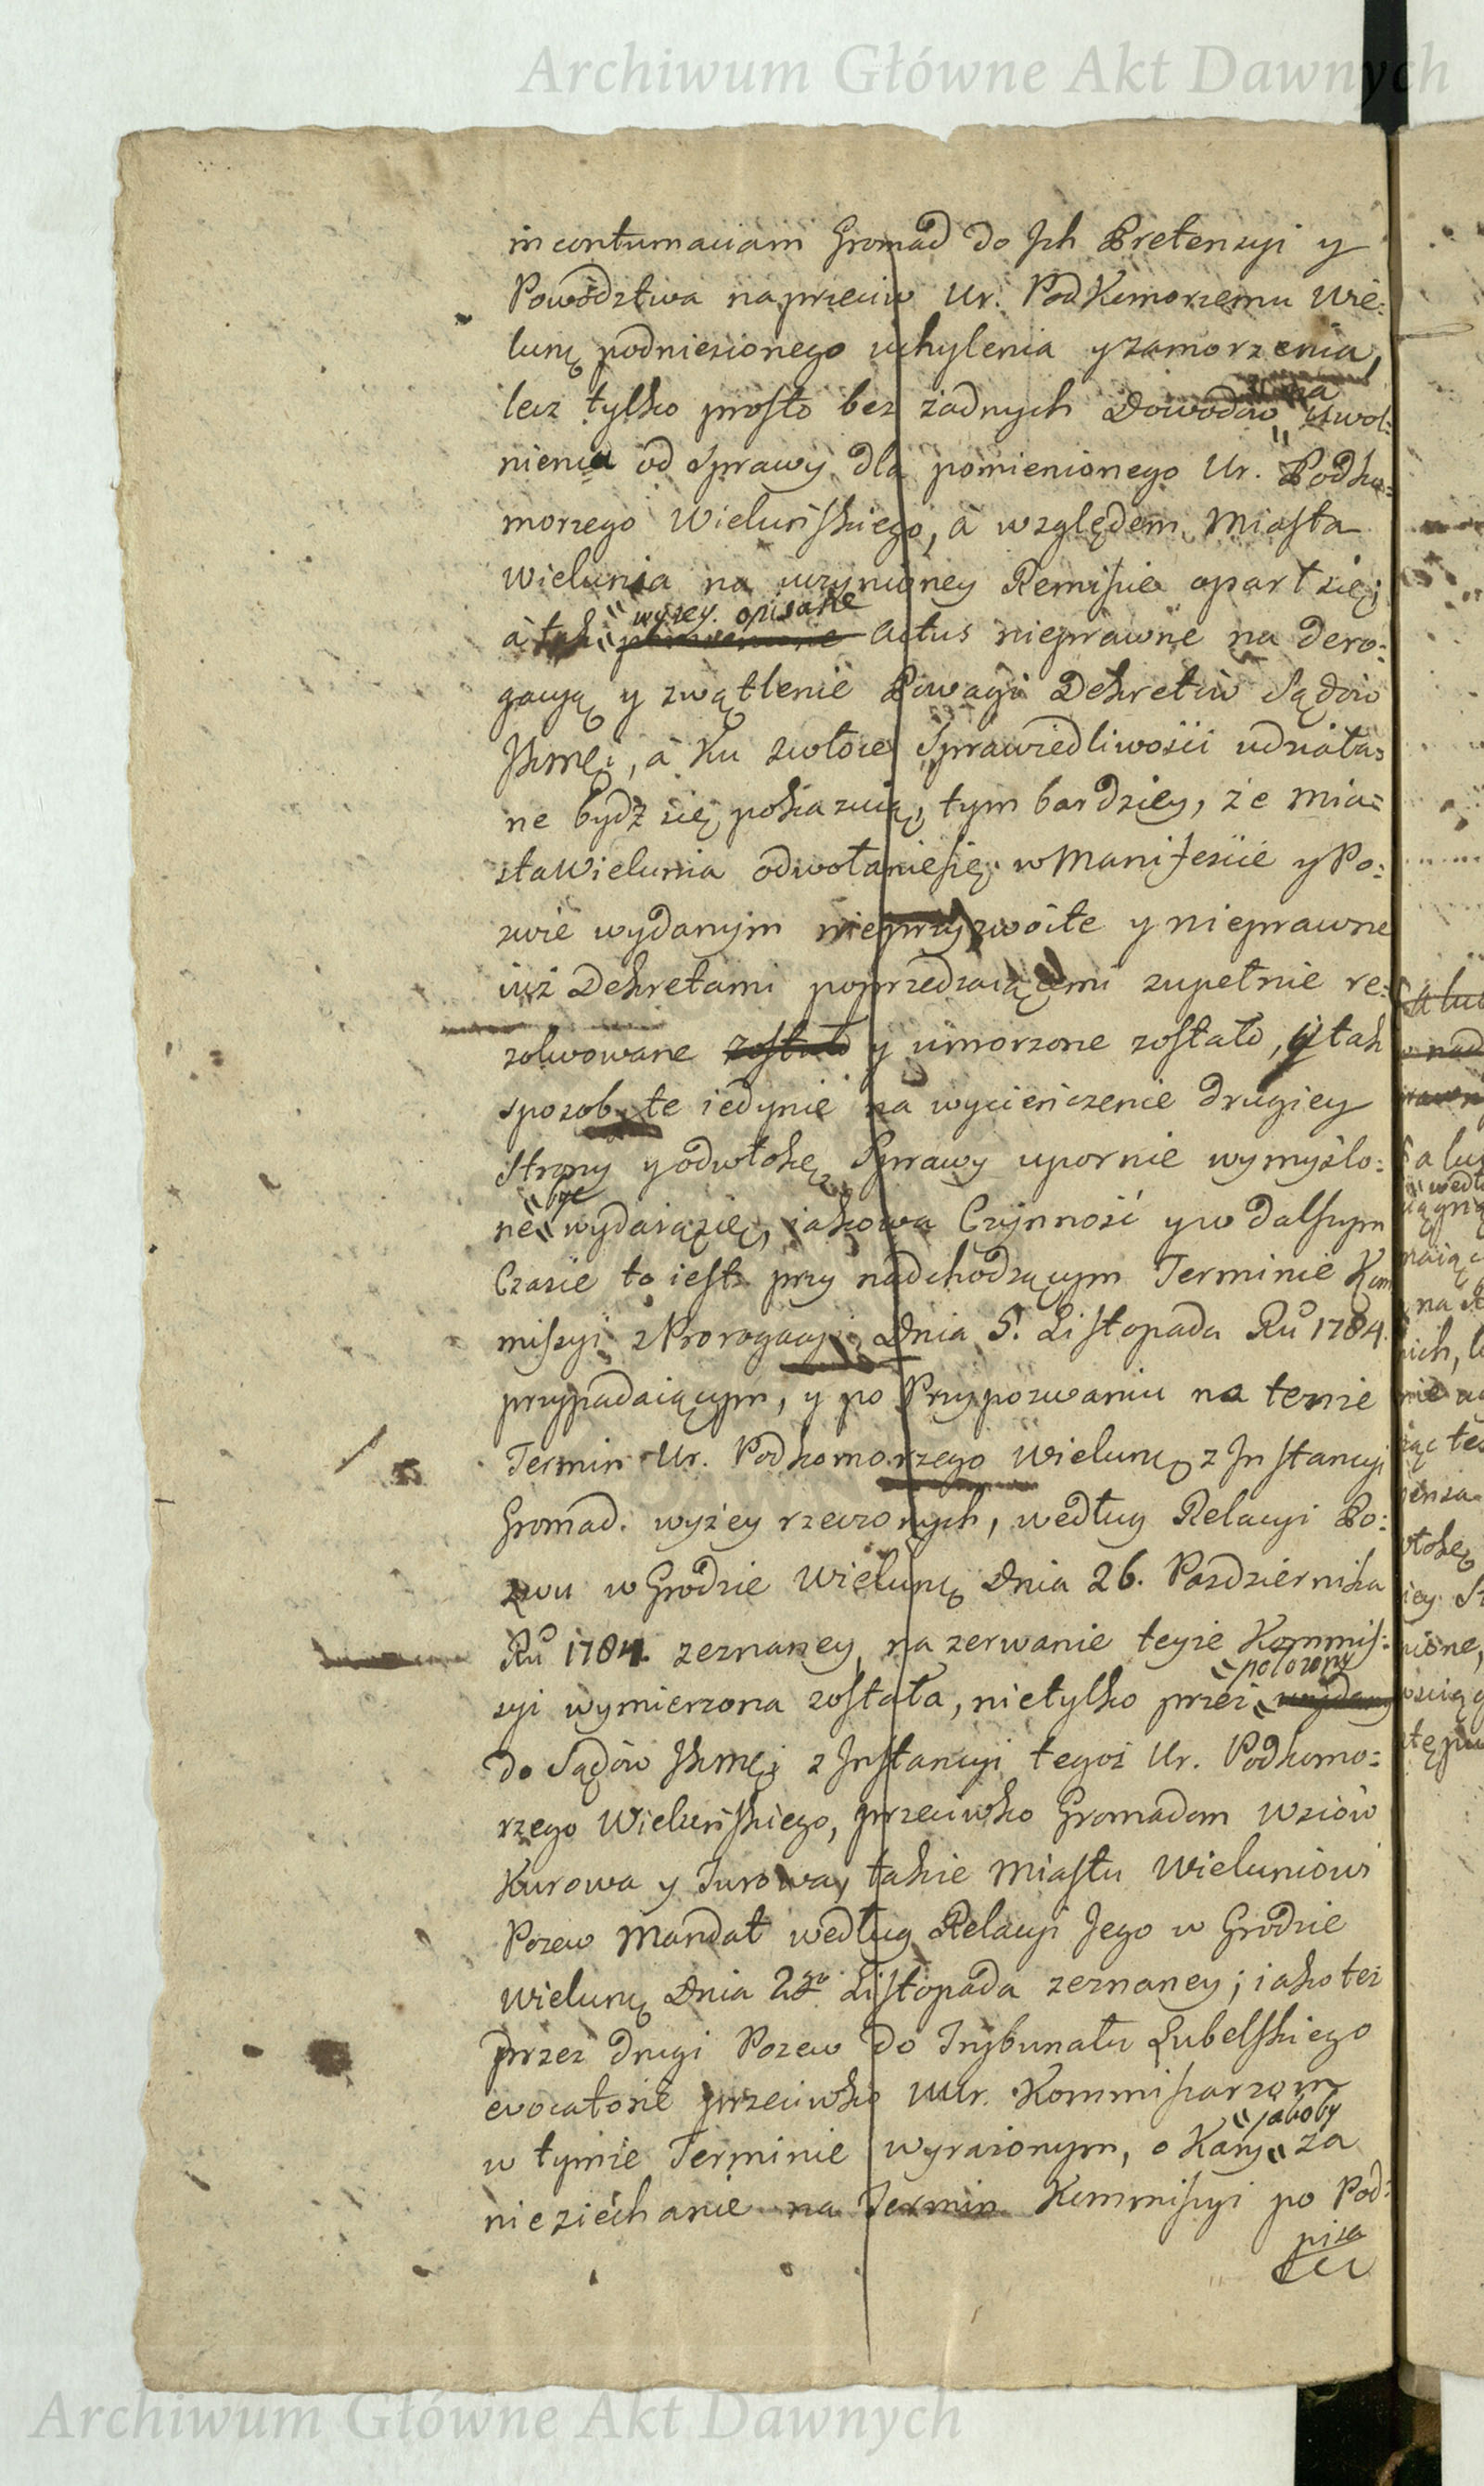 Archiwum Główne Akt Dawnych
in contumaciam Gromad do Jch Pretensyi y
Powództwa naprzeciw Ur. PodKomorzemu Wie:
lunę podniesionego uchylenia y zamorzenia,
lecz tylko prosto bez żadnych Dowodów na uwol:
nienia od Sprawy dla pomienionego Ur. Podko:
morzego Wieluńskiego, à względem Miasta
Wielunia na uczynioney Remissie oparł się;
à tak wyżey opisane Actus nieprawne na dero:
gacyą y zwątlenie Powagi Dekretów Sądów
Jkmęi, à Ku zwłoce Sprawiedliwości udziała:
ne bydź się pokazuią, tym bardziey, że Mia:
sta Wielunia odwołanie się w Manifeście y Po:
zwie wydanym nieprzyzwoite y nieprawne
iuż Dekretami poprzedzaiącemi zupełnie re:
zolwowane zostało y umorzone zostało, y tak
sposoby te iedynie na wycieńczenie drugiey
Strony y odwłokę Sprawy upornie wymyślo:
ne być wydaią się, iakowa Czynność y w dalszym
Czasie to iest przy nadchodzącym Terminie Kom
missyi z Prorogacyi Dnia 5. Listopada Ru 1784.
przypadaiącym, y po Przypozwaniu na tenże
Termin Ur. Podkomorzego Wielunę z Jnstancyi
Gromad. wyżey rzeczonych, według Relacyi Po:
zwu w Grodzie Wielunę Dnia 26. Pazdziernika
Ru 1784. zeznaney, na zerwanie teyże Kommis:
syi wymierzona została, nietylko przez położony wydany
do Sądów Jkmęi z Jnstancyi tegoż Ur. Podkomo:
rzego Wieluńskiego, przeciwko Gromadom Wsiów
Kurowa y Turowa, także Miastu Wieluniowi
Pozew Mandat według Relacyi Jego w Grodzie
Wielunę Dnia 2go Listopada zeznaney; iako też
przez drugi Pozew do Trybunału Lubelskiego
evocatorie przeciwko UUr. Kommisarzom
w tymże Terminie wyrażonym, o Kary jakoby za
nieziechanie na Termin Kommissyi po Pod:
pisa
Archiwum Główne Akt Dawnych